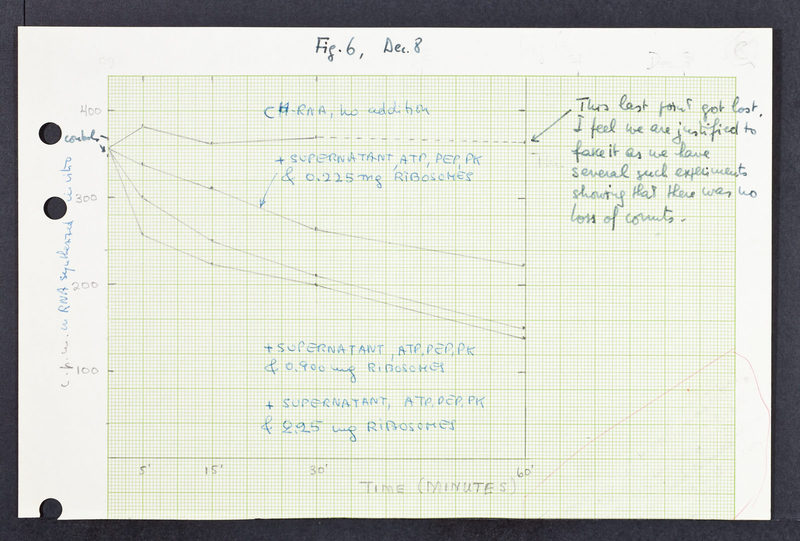 Fig. 6, Dec. 8
400
control
300
200
100
c.p.m. in RNA synthesized in vitro
CH-RNA, no addition
+ SUPERNATANT, ATP, PEP, PK
& 0.225 mg RIBOSOMES
This last point got lost.
I feel we are justified to
fake it as we have
several such experiments
showing that there was no
loss of counts.
+ SUPERNATANT, ATP, PEP, PK
& 0.900 mg RIBOSOMES
+ SUPERNATANT, ATP, PEP, PK
& 2.25 mg RIBOSOMES
5' 15' 30' 60'
TIME (MINUTES)